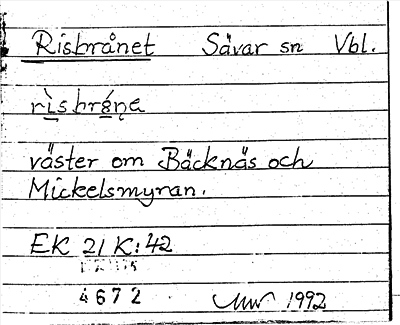 Risbrånet Sävar sn Vbl.
rìsbrǻne̜
väster om Bäcknäs och
Mickelsmyran.
EK 21 K: 42
4672 1992